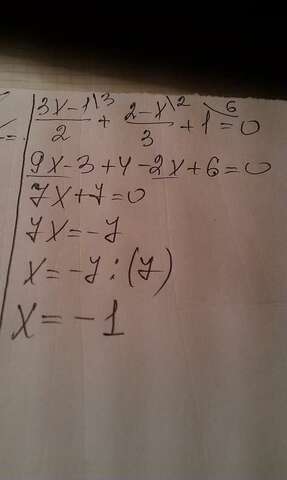 (3x-1)\3/2 + (2-x)\2/3 + 1\6 = 0
9x-3+4-2x+6=0
7x+7=0
7x=-7
x=-7:(7)
x=-1